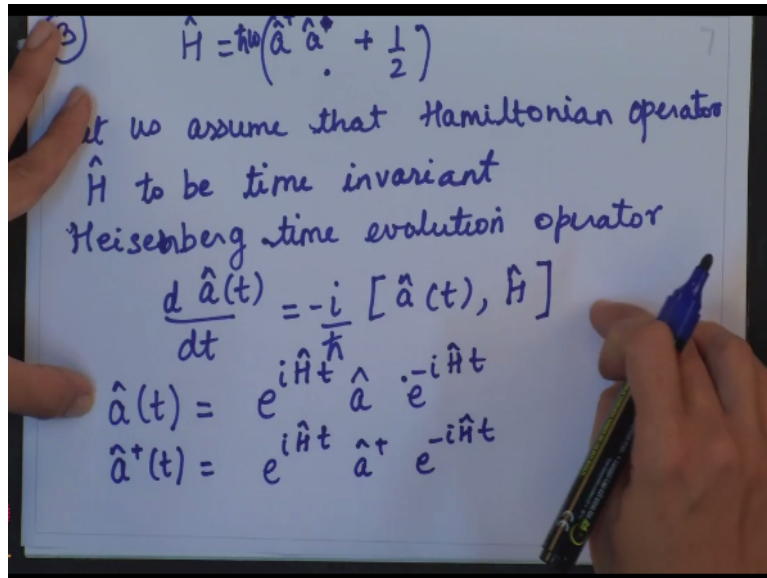 3
Ĥ = ħω(â⁺ â + 1/2)
us assume that Hamiltonian operator
Ĥ to be time invariant
Heisenberg time evolution operator
d â(t)/dt = -i/ħ [â(t), Ĥ]
â(t) = e^{iĤt} â e^{-iĤt}
â⁺(t) = e^{iĤt} â⁺ e^{-iĤt}